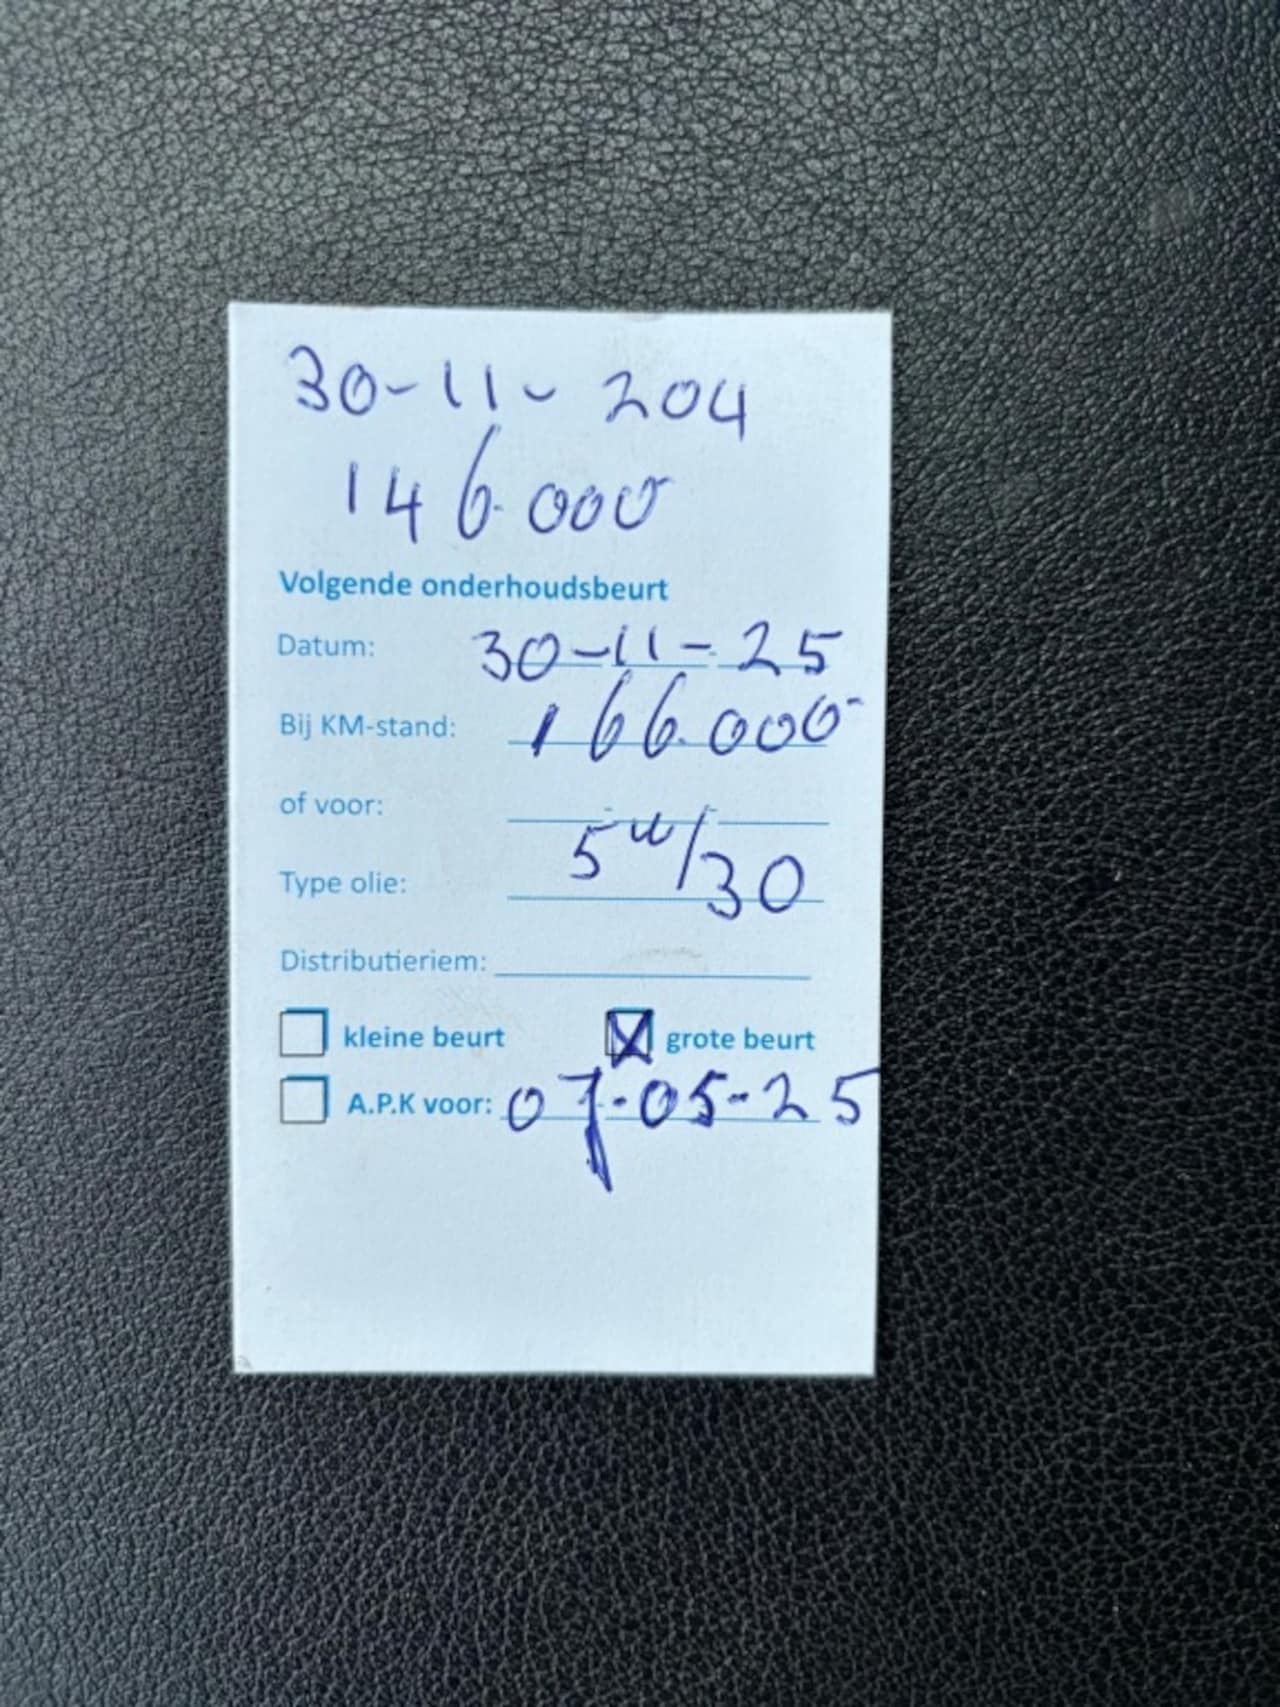 30-11-204
146.000
Volgende onderhoudsbeurt
Datum: 30-11-25
Bij KM-stand: 166.000-
of voor:
Type olie: 5w/30
Distributieriem:
kleine beurt grote beurt
A.P.K voor: 07-05-25